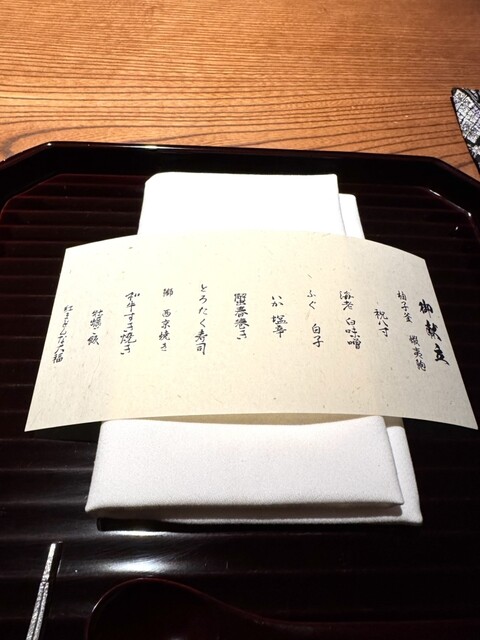 御献立
柚子釜 蝦夷鮑
祝八寸
海老 白味噌
ふぐ 白子
いか 塩辛
蟹春巻き
とろたく寿司
鰤 西京焼き
牛すき焼き
牡蠣ご飯
紅まどんな大福